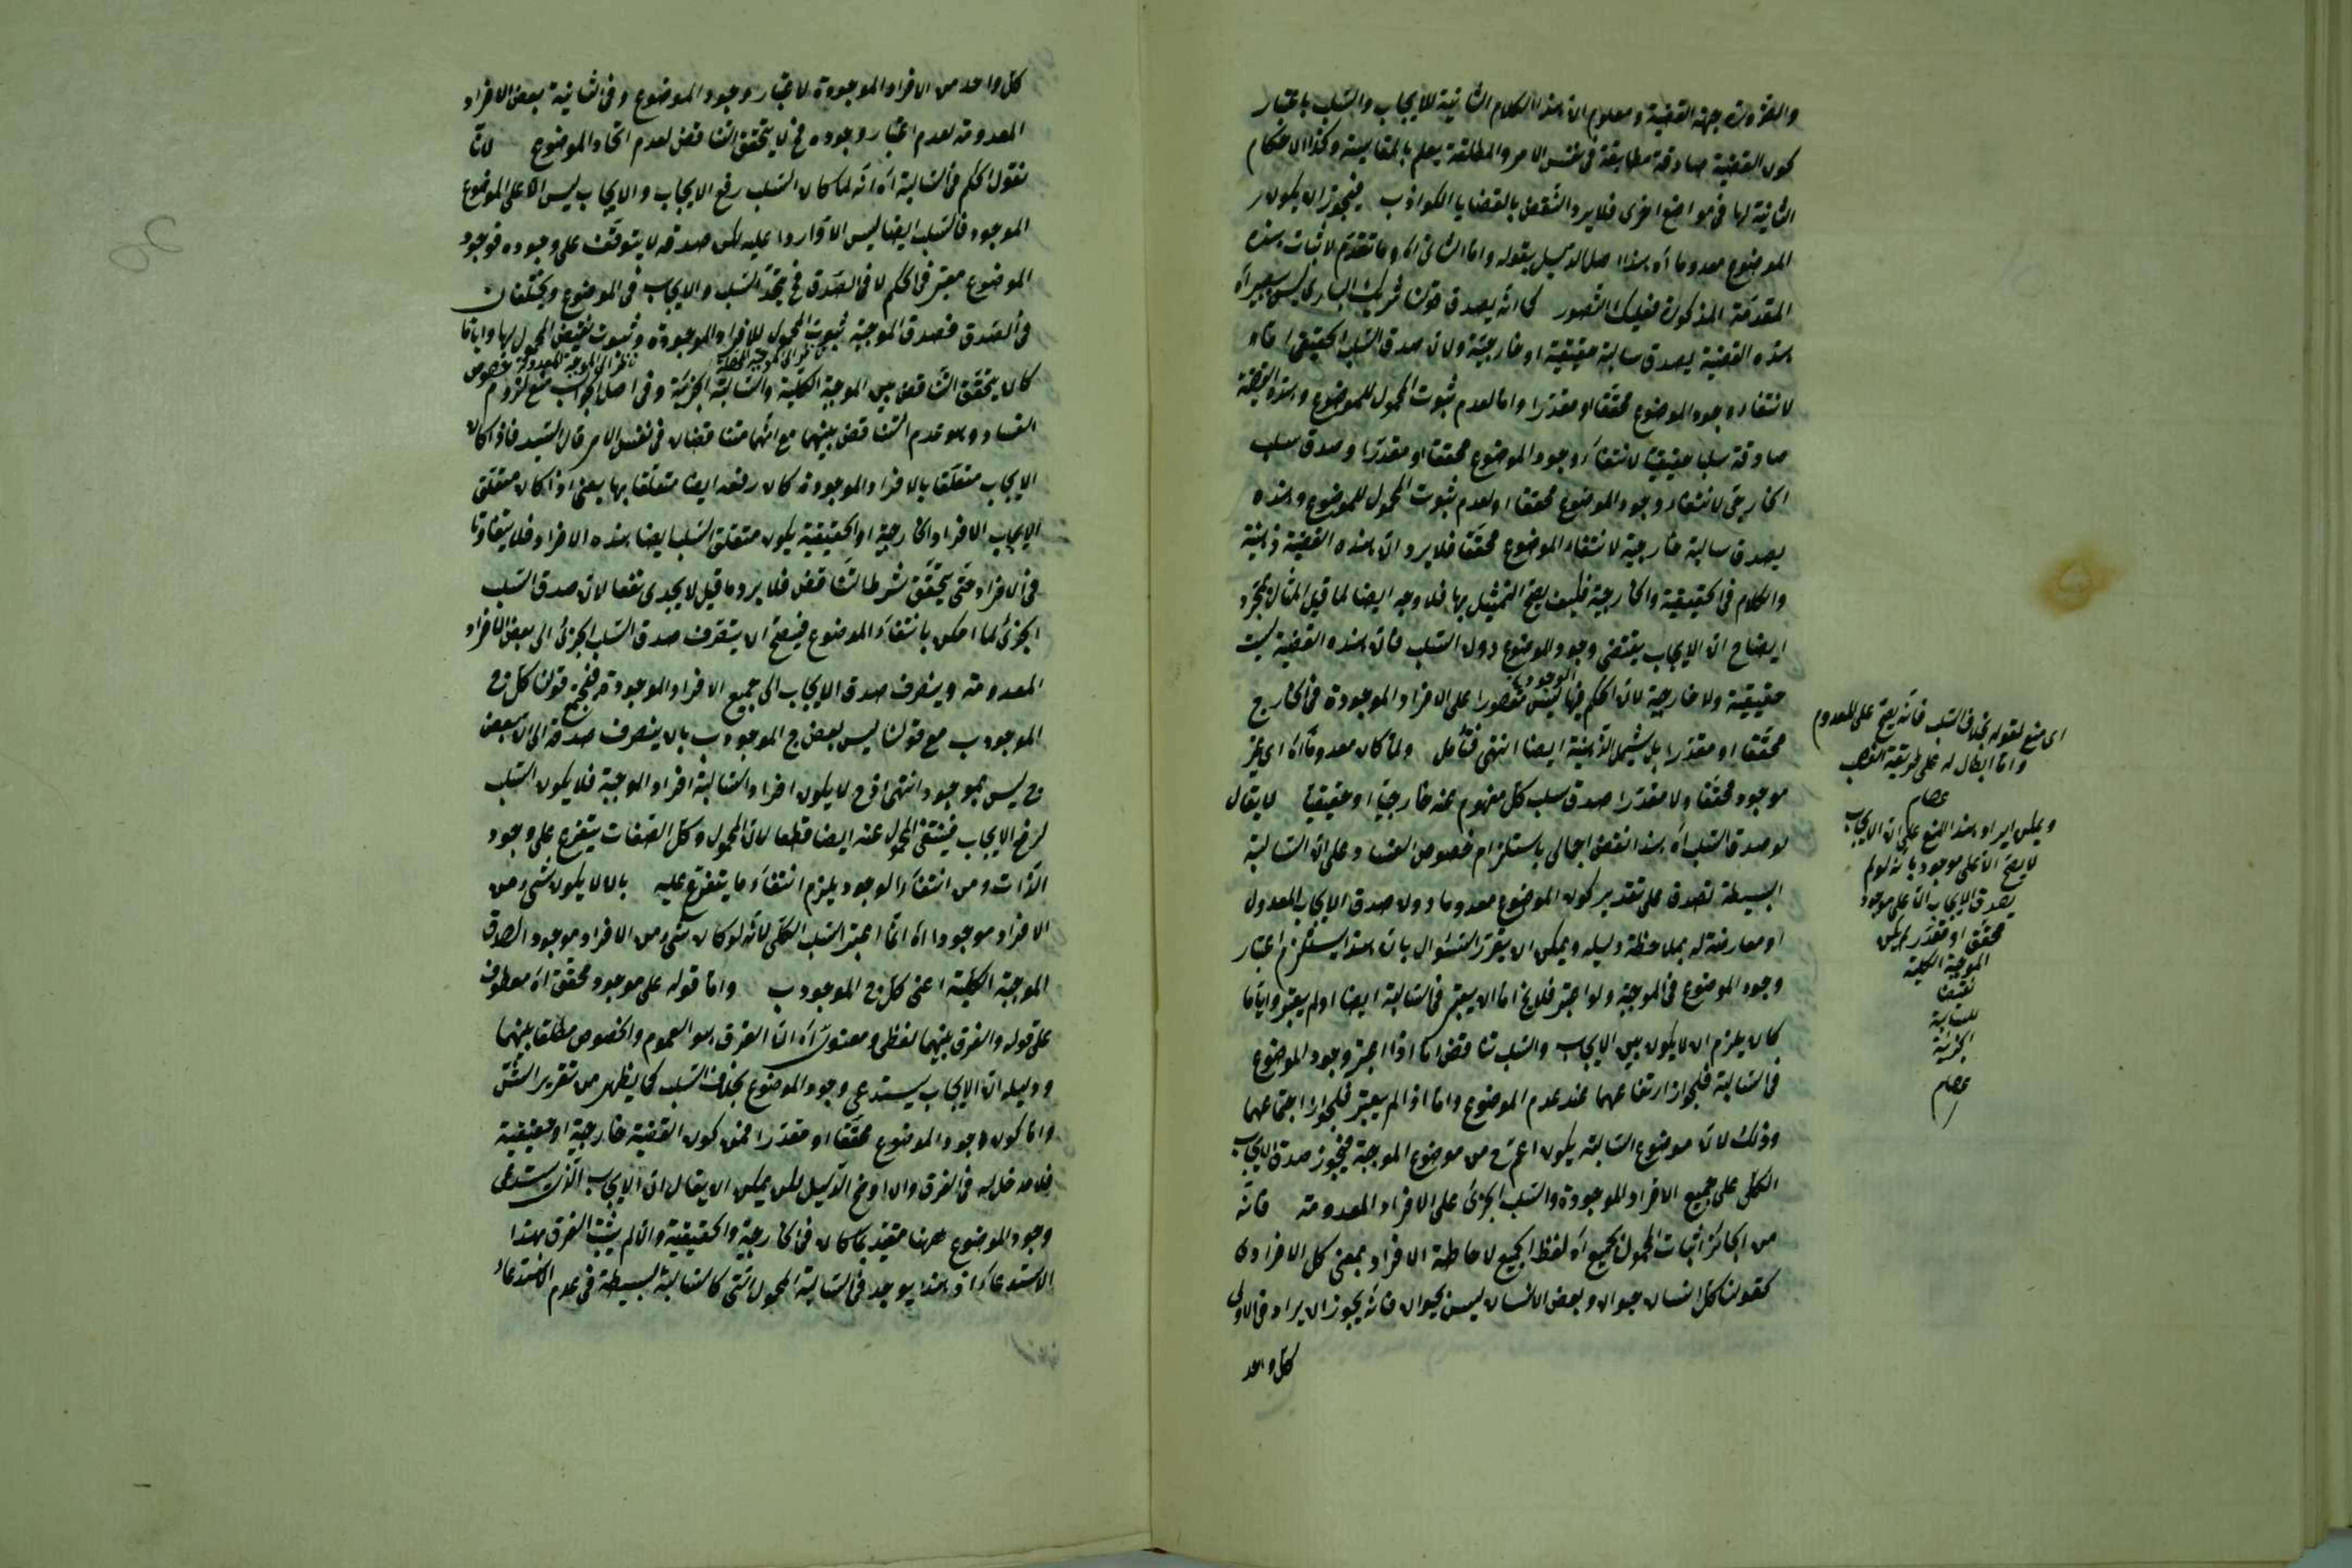 والضرورة جهة القضية ومعلوم ان هذا الكلام الثانية للايجاب والسلب باعتبار
كون القضية صادقة مطابقة في نفس الامر والمطلقة يعلم بالمقايسة وكذا الاحكام
الثانية لها في مواضع اخرى فلا يرد النقض بالقضايا الكواذب فيجوز ان يكون
الموضوع معدوما آه هذا اصل الدليل بقوله واما الثاني اه وما تقدم لاثبات هذه
المقدمة المذكورة فعليك التصور كما انه يصدق قولنا شريك الباري ليس ببصير آه
هذه القضية يصدق سالبة حقيقية او خارجية ولان صدق السلب الحقيقي اما
لانتفاء وجود الموضوع محققا او مقدرا واما لعدم ثبوت المحمول للموضوع وهذه القضية
صادقة سلبا حقيقيا لانتفاء وجود الموضوع محققا او مقدرا وصدق سلب
الخارجي لانتفاء وجود الموضوع محققا او لعدم ثبوت المحمول للموضوع وهذه
يصدق سالبة خارجية لانتفاء الموضوع محققا فلا يرد ان هذه القضية ذهنية
والكلام في الحقيقية والخارجية فكيف يصح التمثيل بها فلا وجه ايضا لما قيل المثال لمجرد
ايضاح ان الايجاب يقتضي وجود الموضوع دون السلب فان هذه القضية ليست
حقيقية ولا خارجية لان الحكم فيها ليس مقصورا على الافراد الموجودة في الخارج
محققا او مقدرا بل يشمل الذهنية ايضا انتهى فتأمل ولما كان معدوما اه اي غير
موجود محققا ولا مقدرا صدق سلب كل مفهوم عنه خارجيا او حقيقيا لا يقال
لو صدق السلب آه هذا نقض اجمالي باستلزام خصوص الفساد وعلى ان السالبة
البسيطة تصدق على تقدير كون الموضوع معدوما دون صدق الايجاب المعدول
او معارضة له بملاحظة دليله ويمكن ان يقرر السؤال بان هذا يستلزم اعتبار
وجود الموضوع في الموجبة ولو اعتبر فلا يخ اما ان يعتبر في السالبة ايضا او لم يعتبر وايا ما
كان يلزم ان لا يكون بين الايجاب والسلب تناقض اما اذا اعتبر وجود الموضوع
في السالبة فلجواز ارتفاعهما عند عدم الموضوع واما اذا لم يعتبر فلجواز اجتماعهما
وذلك لان موضوع السالبة يكون اعم ح من موضوع الموجبة فيجوز صدق الايجاب
الكلي على جميع الافراد الموجودة والسلب الجزئي على الافراد المعدومة فانه
من الجائز اثبات المحمول لجميع آه لفظ الجميع لاحاطة الافراد بمعنى كل الافرادي
كقولنا كل انسان حيوان وبعض الانسان ليس بحيوان فانه يجوز ان يراد في الاولى
كل واحد
اي منع لقوله بخلاف السلب فانه يصح على المعدوم
واما ابطال له على طريقة الغصب
عصام
ويمكن ايراد هذا المنع على ان الايجاب
لا يصح الا على موجود بانه لو لم
يصدق الايجاب الا على موجود
محقق او مقدر لم يكن
الموجبة الكلية
نقيضا
للسالبة
الجزئية
عصام
كل واحد من الافراد الموجودة لاعتبار وجود الموضوع وفي الثانية بعض الافراد
المعدومة لعدم اعتبار وجوده فح لا يتحقق التناقض لعدم اتحاد الموضوع لانا
نقول الحكم في السالبة آه انه لما كان السلب رفع الايجاب والايجاب ليس الا على الموضوع
الموجود فالسلب ايضا ليس الا واردا عليه لكن صدقه لا يتوقف على وجوده فوجود
الموضوع معتبر في الحكم لا في الصدق فح يتحد السلب والايجاب في الموضوع ويختلفان
في الصدق فصدق الموجبة ثبوت المحمول للافراد الموجودة وثبوت نقيض المحمول لها وايا ما
كان يتحقق التناقض بين الموجبة الكلية والسالبة الجزئية وفي اصل الجواب منع لزوم خصوص
الفساد وهو عدم التناقض بينهما مع انهما متناقضان في نفس الامر قال السيد فاذا كان
الايجاب متعلقا بالافراد الموجودة كان رفعه ايضا متعلقا بها يعني اذا كان متعلق
الايجاب الافراد الخارجية او الحقيقية يكون متعلق السلب ايضا هذه الافراد فلا يتفاوتا
في الافراد حتى يتحقق شرط التناقض فلا يرد ما قيل لا يجدي نفعا لان صدق السلب
الجزئي لما امكن بانتفاء الموضوع فيصح ان يتصرف صدق السلب الجزئي الى بعض الافراد
المعدومة وينصرف صدق الايجاب الى جميع الافراد الموجودة فيجتمع قولنا كل ج
الموجود ب مع قولنا ليس بعض ج الموجود ب بان ينصرف صدقه الى ان بعض
ج ليس بموجود انتهى اذ ح لا يكون افراد السالبة افراد الموجبة فلا يكون السلب
لرفع الايجاب فينتفي المحمول عنه ايضا قطعا لان المحمول وكل الصفات يتفرع على وجود
الذات ومن انتفاء الوجود يلزم انتفاء ما يتفرع عليه بان لا يكون شيء من
الافراد موجودا اه انما اعتبر السلب الكلي لانه لو كان شيء من الافراد موجود الصدق
الموجبة الكلية اعني كل ج الموجود ب واما قوله على موجود محقق آه معطوف
على قوله والفرق بينهما لفظي ومعنوي آه ان الفرق هو العموم والخصوص مطلقا بينهما
ودليله ان الايجاب يستدعي وجود الموضوع بخلاف السلب كما يظهر من تقرير الشق
واما كون وجود الموضوع محققا او مقدرا فمن كون القضية خارجية او حقيقية
فلا مدخل له في الفرق وان اوضح الدليل لكن يمكن ان يقال ان الايجاب الذي يستدعي
وجود الموضوع ههنا مقيد بما كان في الخارجية والحقيقية والا لم يثبت الفرق بهذا
الاستدعاء اذ هذا يوجد في السالبة المحمول التي كالسالبة البسيطة في عدم الاستدعاء